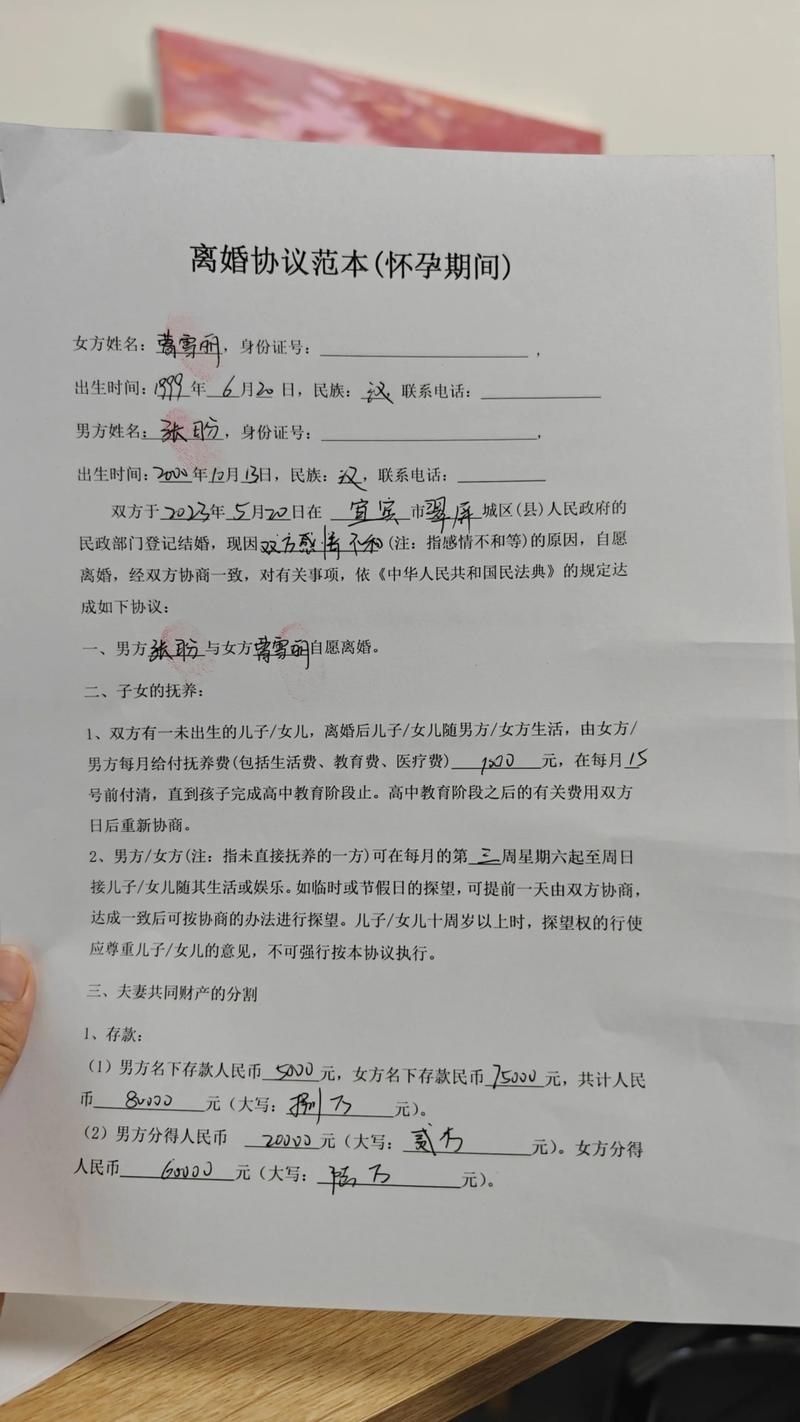 离婚协议范本(怀孕期间)
女方姓名：曹雪丽，身份证号：，
出生时间：1999年6月20日，民族：汉 联系电话：
男方姓名：张昐，身份证号：，
出生时间：2000年10月13日，民族：汉，联系电话：
双方于2023年5月20日在 宜宾 市翠屏城区(县)人民政府的
民政部门登记结婚，现因双方感情不和(注：指感情不和等)的原因，自愿
离婚，经双方协商一致，对有关事项，依《中华人民共和国民法典》的规定达
成如下协议：
一、男方张昐与女方曹雪丽自愿离婚。
二、子女的抚养：
1、双方有一未出生的儿子/女儿，离婚后儿子/女儿随男方/女方生活，由女方/
男方每月给付抚养费(包括生活费、教育费、医疗费)元，在每月15
号前付清，直到孩子完成高中教育阶段止。高中教育阶段之后的有关费用双方
日后重新协商。
2、男方/女方(注：指未直接抚养的一方)可在每月的第 三 周星期六起至周日
接儿子/女儿随其生活或娱乐。如临时或节假日的探望，可提前一天由双方协商，
达成一致后可按协商的办法进行探望。儿子/女儿十周岁以上时，探望权的行使
应尊重儿子/女儿的意见，不可强行按本协议执行。
三、夫妻共同财产的分割
1、存款：
（1）男方名下存款人民币 5000 元，女方名下存款民币 75000 元，共计人民
币 80000 元（大写：捌万 元）。
（2）男方分得人民币 20000 元（大写：贰万 元）。女方分得
人民币 60000 元（大写：陆万 元）。